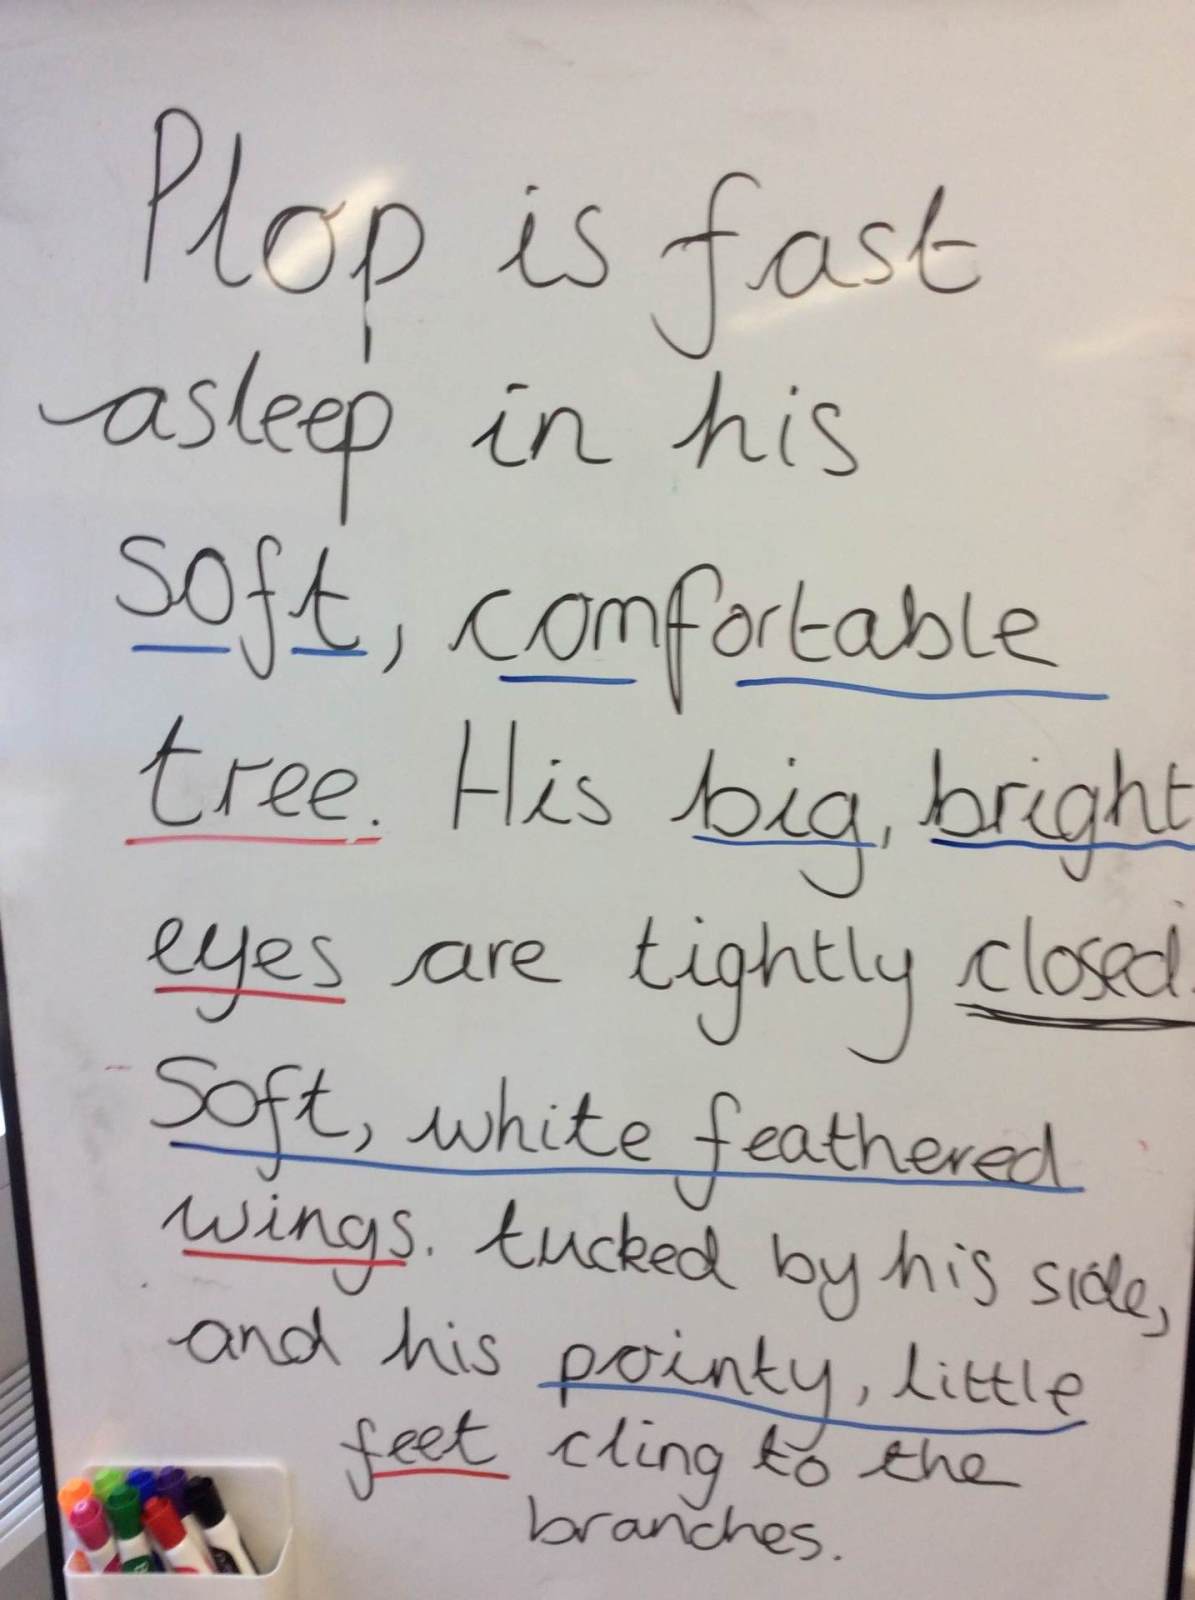 Plop is fast
asleep in his
soft, comfortable
tree. His big, bright
eyes are tightly closed.
Soft, white feathered
wings. tucked by his side,
and his pointy, little
feet cling to the
branches.